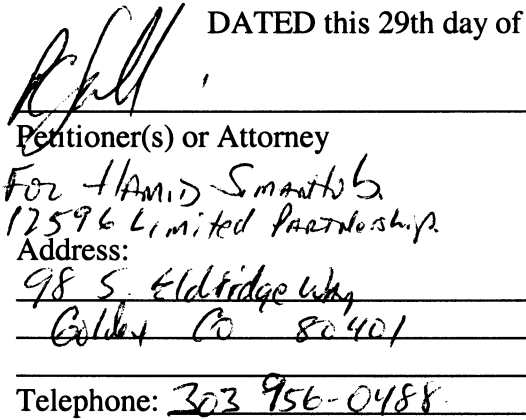 DATED this 29th day of
Petitioner(s) or Attorney
For HAMID Simantob
12596 Limited Partnership.
Address:
98 S. Eldridge Way
Golden Co 80401
Telephone: 303 956-0488